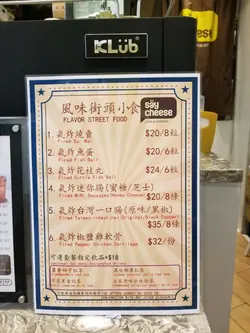 KLüb
風味街頭小食
FLAVOR STREET FOOD
say cheese
1. 氣炸燒賣 $20/8粒
Fired Su Mai
2. 氣炸魚蛋 $20/8粒
Fired Fish Ball
3. 氣炸花枝丸 $24/6粒
Fired Cuttle Fish Ball
4. 氣炸迷你腸(蜜糖/芝士)
Fired Mini Sausages(Honey/Cheese)
$20/8條
5. 氣炸台灣一口腸(原味/黑椒)
Fired Taiwan Intestinal(Original/Black Pepper)
$35/8條
6. 氣炸椒鹽雞軟骨 $32/份
Fired Pepper Chicken Cartilage
可選套餐指定飲品+$18